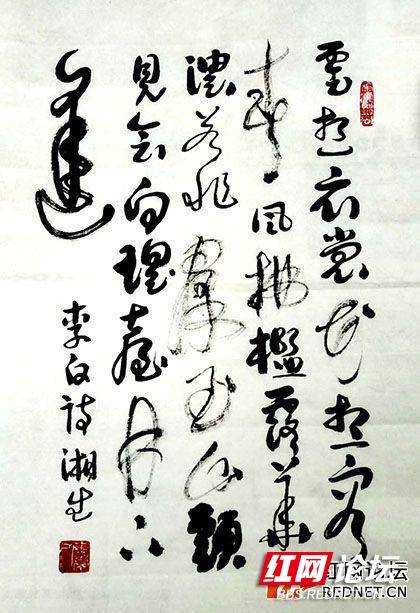 雲想衣裳花想容
春風拂檻露華
濃若非群玉山頭
見会向瑶臺月下
逢
李白詩湘生
红网论坛
BBS.REDNET.CN
论坛
REDNET.CN